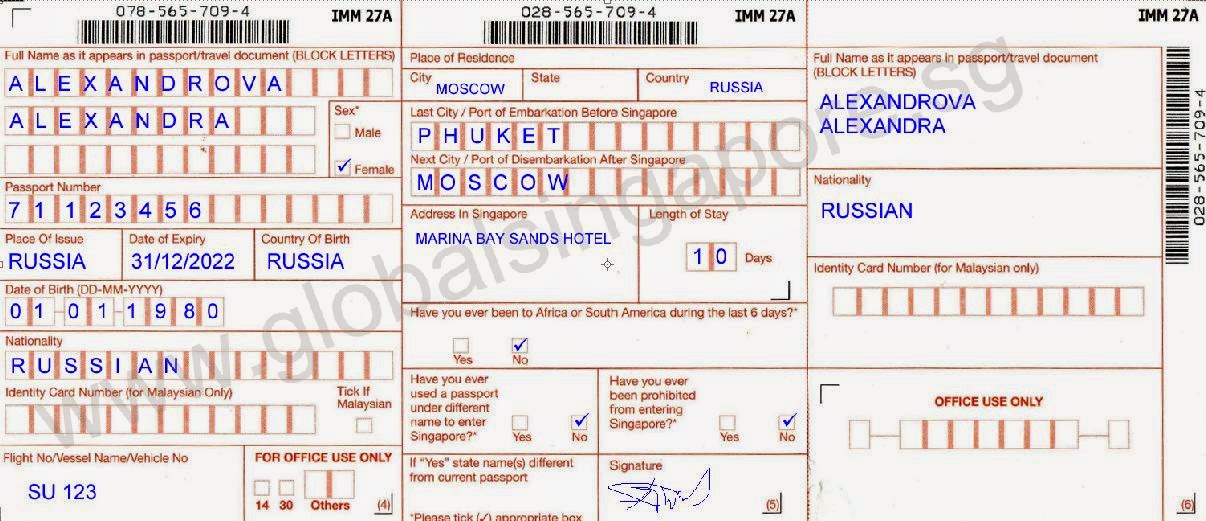 078-565-709-4
IMM 27A
Full Name as it appears in passport/travel document (BLOCK LETTERS)
ALEXANDROVA
ALEXANDRA
Sex*
Male
✓ Female
Passport Number
71123456
Place Of Issue
RUSSIA
Date of Expiry
31/12/2022
Country Of Birth
RUSSIA
Date of Birth (DD-MM-YYYY)
01-01-1980
Nationality
RUSSIAN
Identity Card Number (for Malaysian Only)
Tick If
Malaysian
Flight No/Vessel Name/Vehicle No
SU 123
FOR OFFICE USE ONLY
14 30 Others
(4)
028-565-709-4
IMM 27A
Place of Residence
City
MOSCOW
State
Country
RUSSIA
Last City / Port of Embarkation Before Singapore
PHUKET
Next City / Port of Disembarkation After Singapore
MOSCOW
Address In Singapore
MARINA BAY SANDS HOTEL
Length of Stay
10 Days
Have you ever been to Africa or South America during the last 6 days?*
Yes
✓ No
Have you ever
used a passport
under different
name to enter
Singapore?*
Yes
✓ No
Have you ever
been prohibited
from entering
Singapore?*
Yes
✓ No
If "Yes" state name(s) different
from current passport
*Please tick (✓) appropriate box
Signature
(5)
IMM 27A
Full Name as it appears in passport/travel document
(BLOCK LETTERS)
ALEXANDROVA
ALEXANDRA
Nationality
RUSSIAN
Identity Card Number (for Malaysian only)
OFFICE USE ONLY
(6)
028-565-709-4
www.globalsingapore.sg